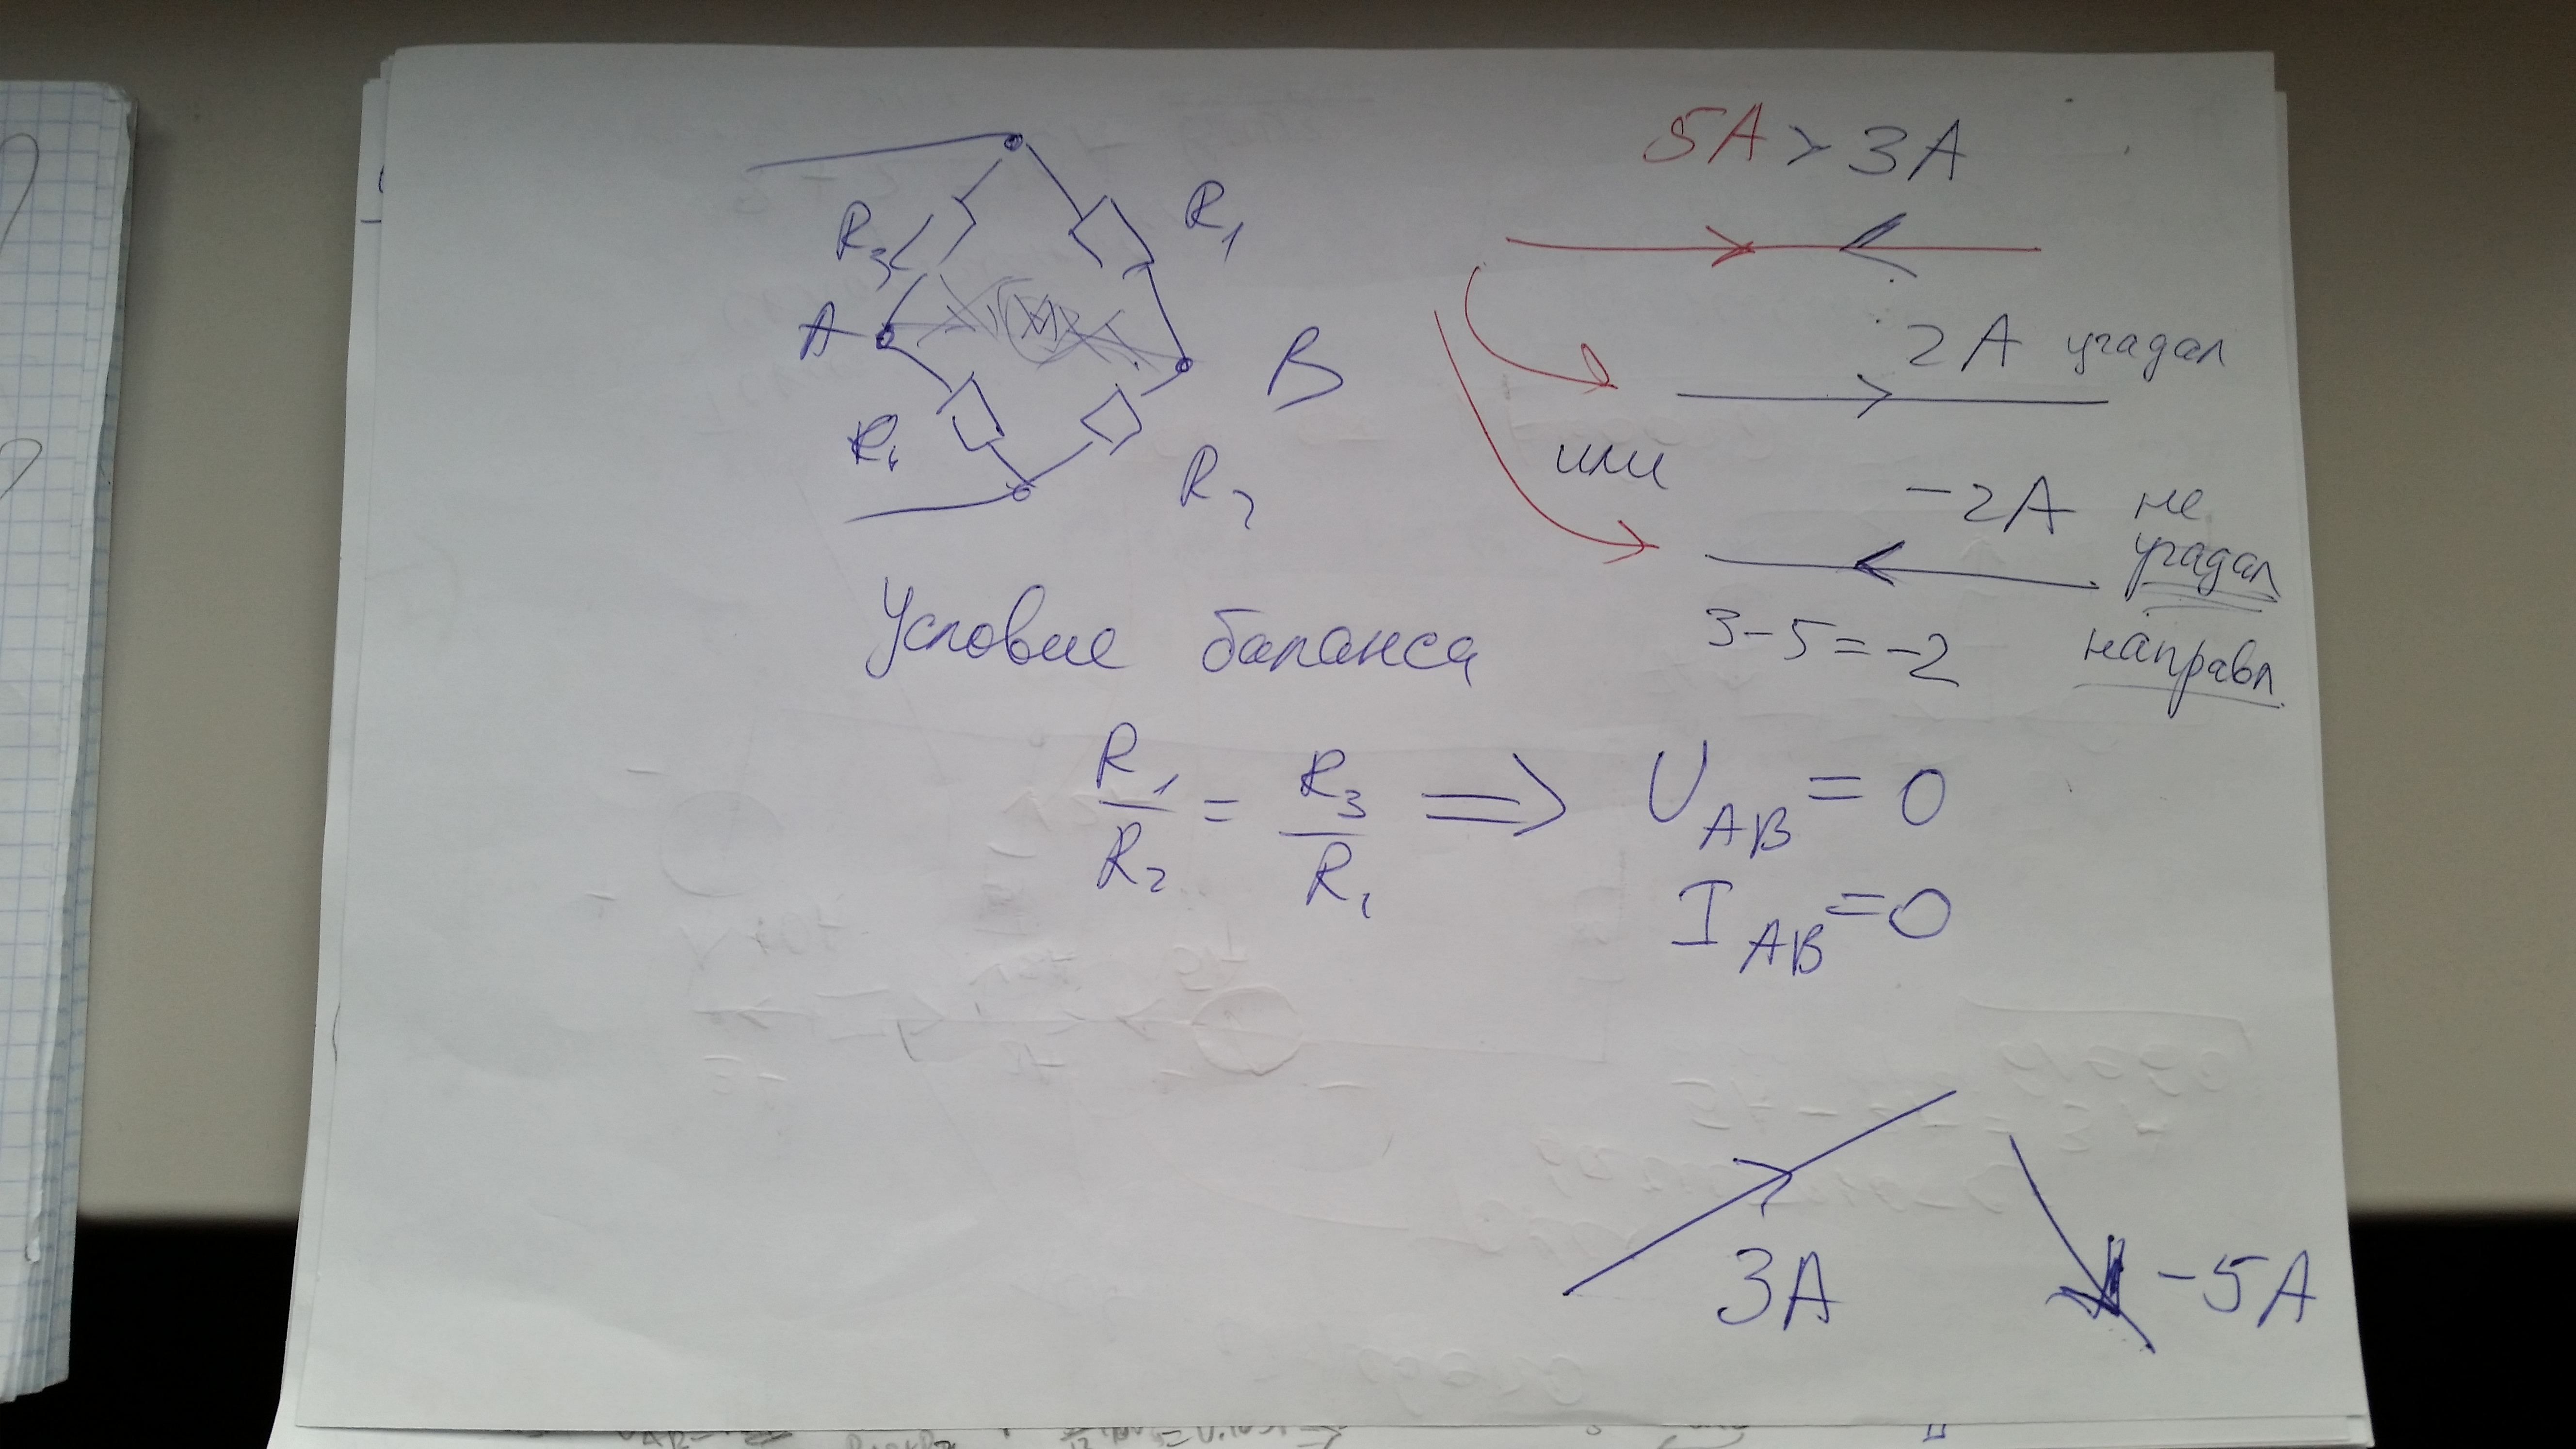 R₃
R₁
A
B
Rₗ
R₂
5A > 3A
2A угадал
или
-2A не
угадал
направл
3-5=-2
Условие баланса
R₁/R₂ = R₃/Rₗ ⟹ U_AB = 0
I_AB = 0
3A
-5A